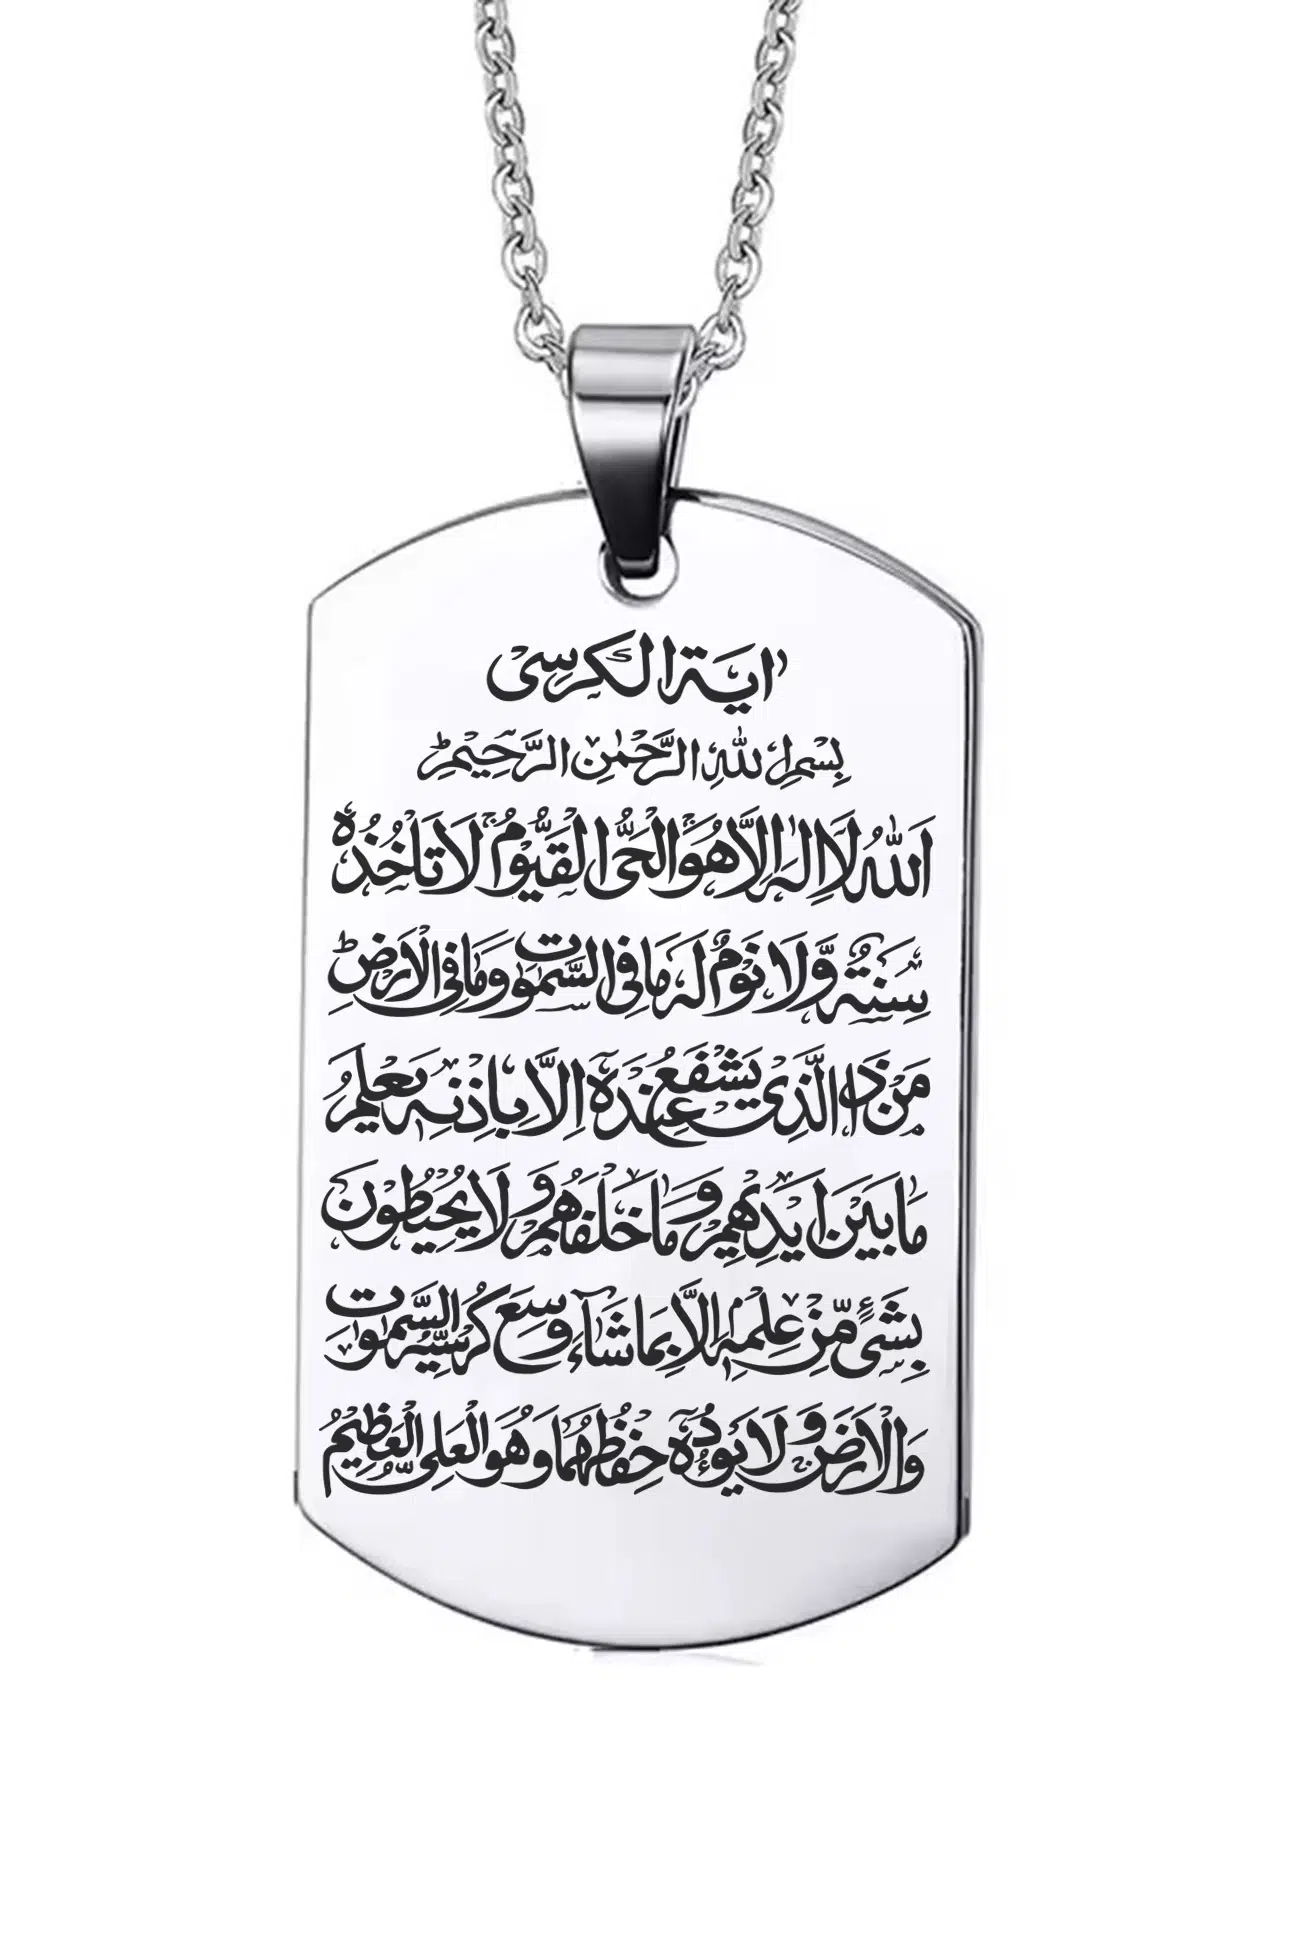 اية الكرسى
بِسْمِ اللهِ الرَّحْمٰنِ الرَّحِيْمِ
اَللهُ لَا اِلٰهَ اِلَّا هُوَ الْحَىُّ الْقَيُّوْمُ لَا تَاْخُذُهٗ
سِنَةٌ وَّلَا نَوْمٌ لَهٗ مَا فِى السَّمٰوٰتِ وَمَا فِى الْاَرْضِ
مَنْ ذَا الَّذِىْ يَشْفَعُ عِنْدَهٗ اِلَّا بِاِذْنِهٖ يَعْلَمُ
مَا بَيْنَ اَيْدِيْهِمْ وَمَا خَلْفَهُمْ وَلَا يُحِيْطُوْنَ
بِشَىْءٍ مِّنْ عِلْمِهٖ اِلَّا بِمَا شَآءَ وَسِعَ كُرْسِيُّهُ السَّمٰوٰتِ
وَالْاَرْضَ وَلَا يَـُٔوْدُهٗ حِفْظُهُمَا وَهُوَ الْعَلِىُّ الْعَظِيْمُ